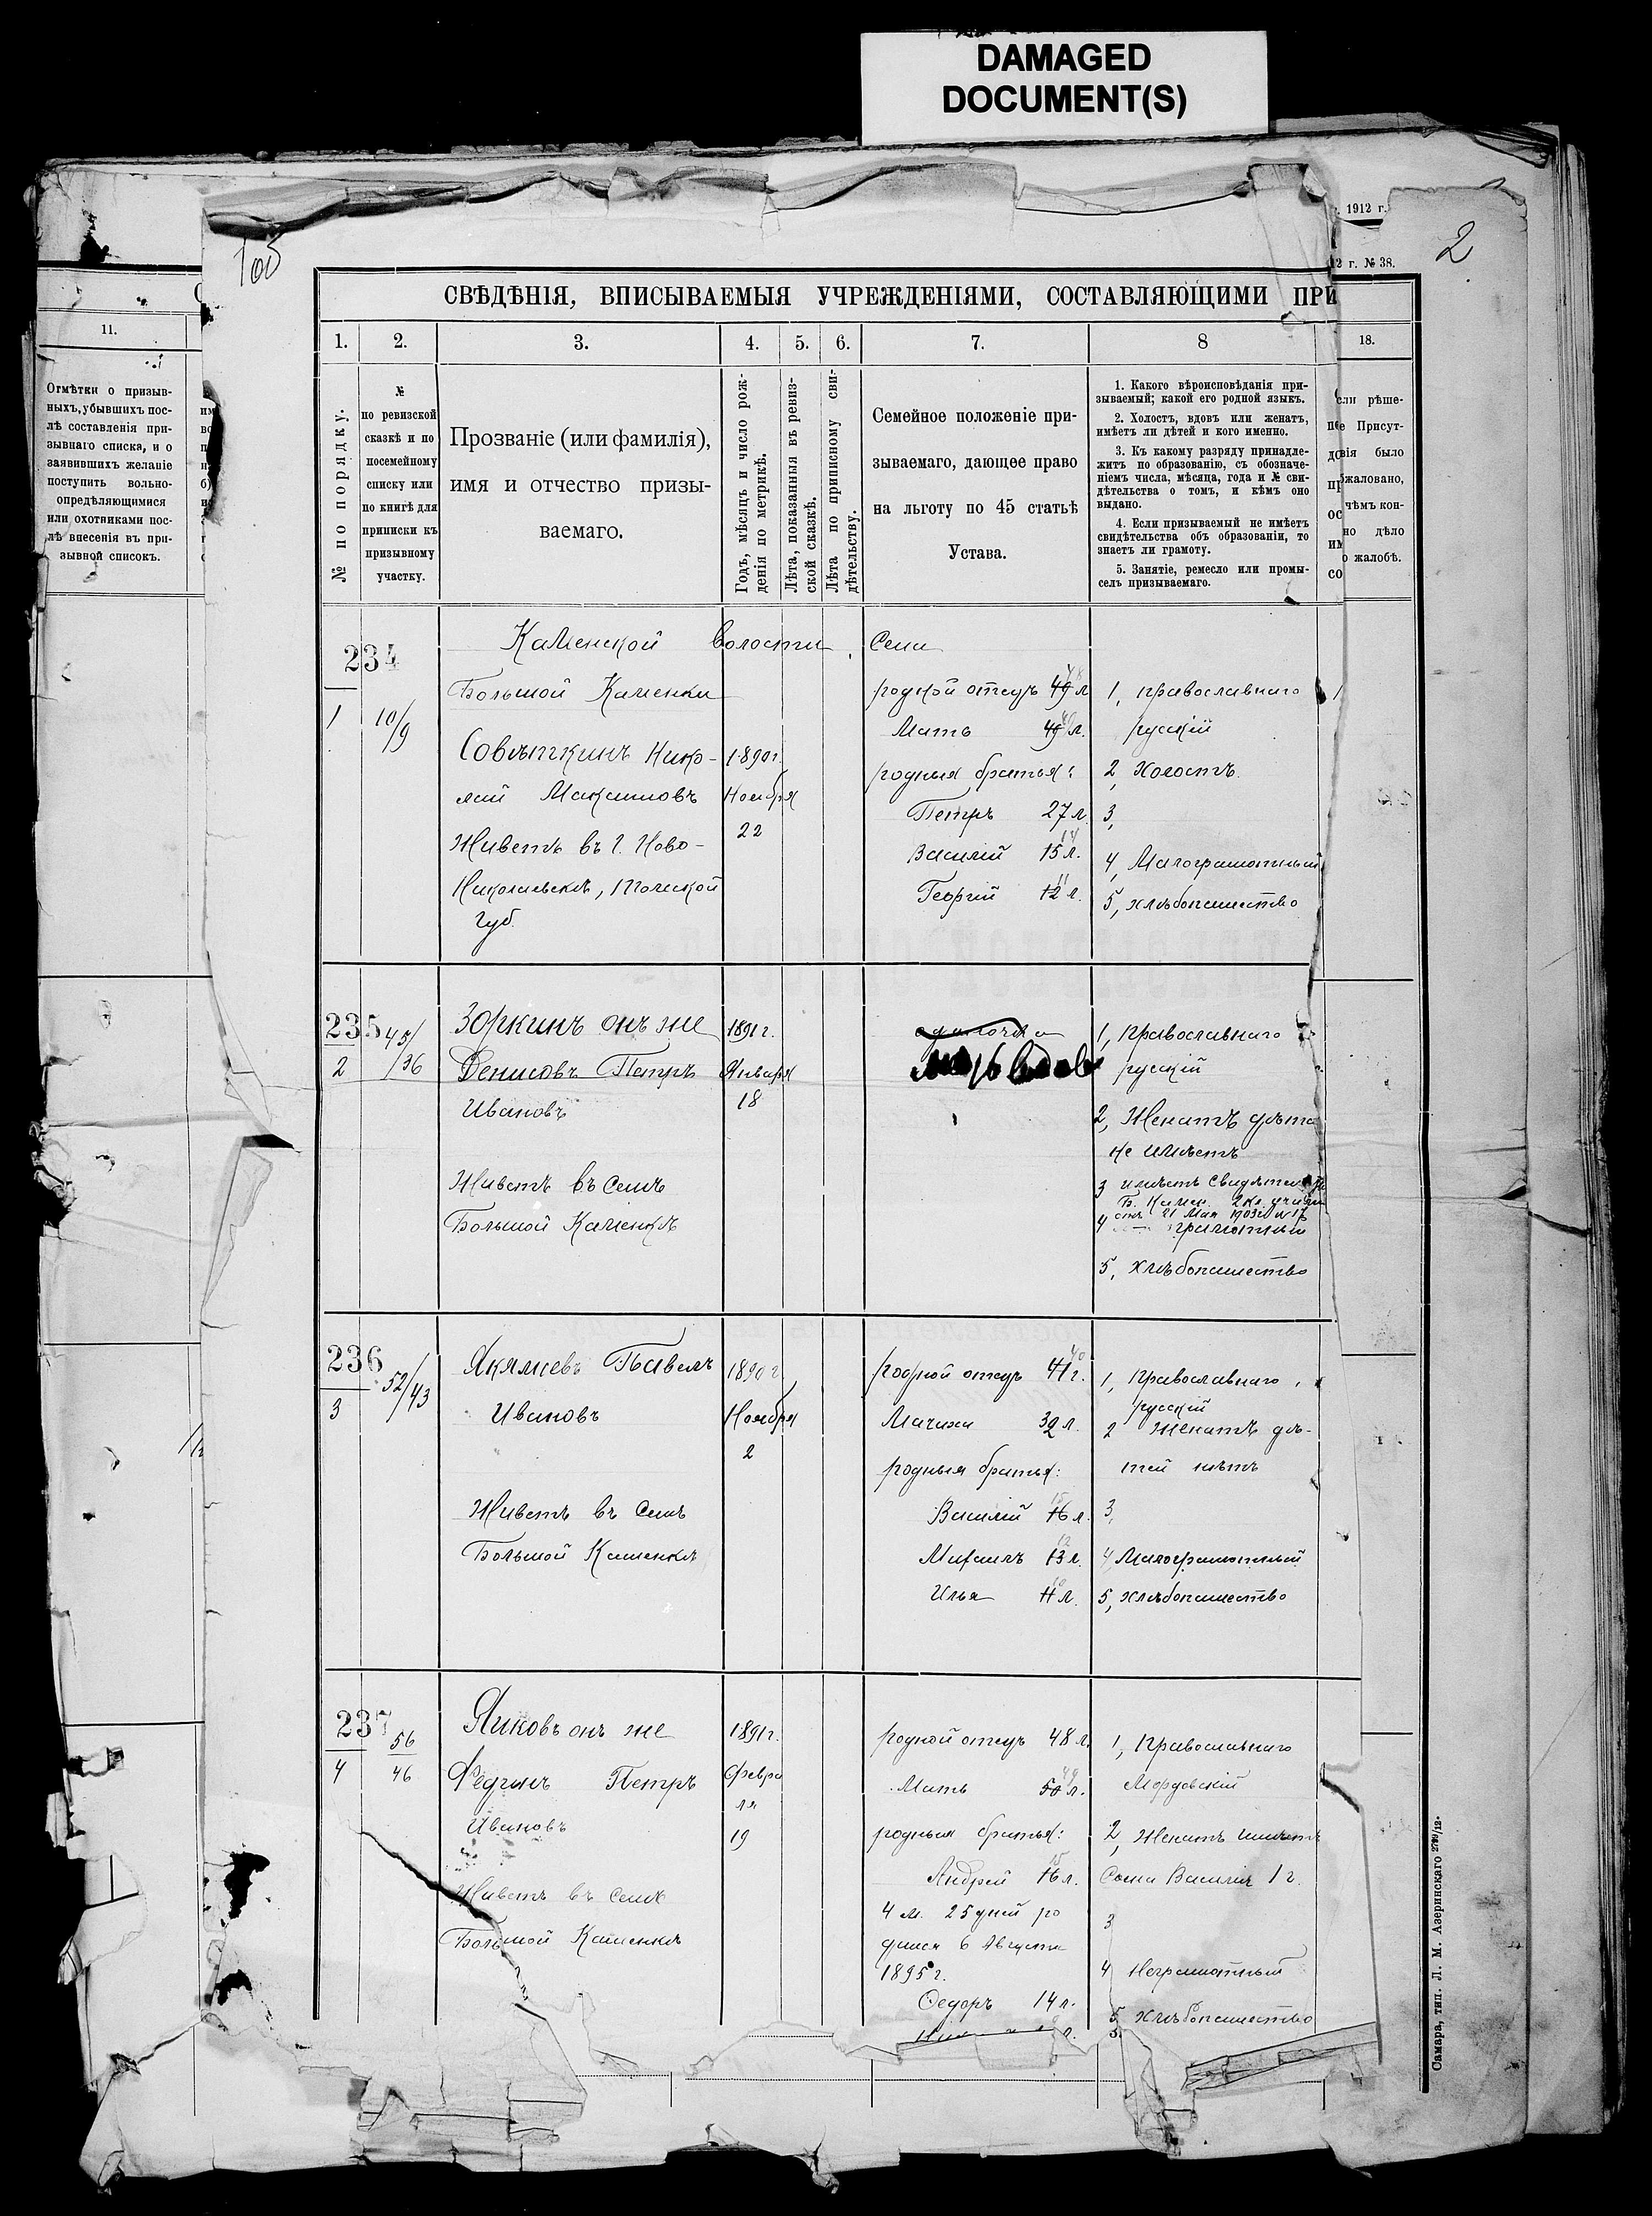 DAMAGED
DOCUMENT(S)
1912 г.
12 г. № 38.
2
100
11.
Отмѣтки о призыв-
ныхъ, убывшихъ пос-
лѣ составленія при-
зывнаго списка, и о
заявившихъ желаніе
поступить вольно-
опредѣляющимися
или охотниками пос-
лѣ внесенія въ при-
зывной списокъ.
СВѢДѢНІЯ, ВПИСЫВАЕМЫЯ УЧРЕЖДЕНІЯМИ, СОСТАВЛЯЮЩИМИ ПРИ
1. 2. 3. 4. 5. 6. 7. 8 18.
№ по порядку.
№
по ревизской
сказкѣ и по
посемейному
списку или
по книгѣ для
приписки къ
призывному
участку.
Прозваніе (или фамилія),
имя и отчество призы-
ваемаго.
Годъ, мѣсяцъ и число рож-
денія по метрикѣ.
Лѣта, показанныя въ ревиз-
ской сказкѣ.
Лѣта по приписному сви-
дѣтельству.
Семейное положеніе при-
зываемаго, дающее право
на льготу по 45 статьѣ
Устава.
1. Какого вѣроисповѣданія при-
зываемый; какой его родной языкъ.
2. Холостъ, вдовъ или женатъ,
имѣетъ ли дѣтей и кого именно.
3. Къ какому разряду принадле-
житъ по образованію, съ обозначе-
ніемъ числа, мѣсяца, года и № сви-
дѣтельства о томъ, и кѣмъ оно
выдано.
4. Если призываемый не имѣетъ
свидѣтельства объ образованіи, то
знаетъ ли грамоту.
5. Занятіе, ремесло или промы-
селъ призываемаго.
сли рѣше-
е Присут-
вія было
бжаловано,
чѣмъ кон-
но дѣло
о жалобѣ.
234
1
10/9
Каменской волости, Села
Большой Каменки
Совѣткинъ Нико-
лай Максимовъ
Живетъ въ г. Ново-
Николаевскѣ, Томской
губ.
1890 г.
Ноября
22
родной отецъ 49 48 л
Мать 49 л.
родныя братья:
Петръ 27 л.
Василій 15 14 л.
Георгій 12 11 л.
1, православнаго
русскій
2, Холостъ.
3,
4, Малограмотный
5, хлѣбопашество
235
2
45/36
Зоркинъ онъ же
Денисовъ Петръ
Ивановъ
Живетъ въ селѣ
Большой Каменкѣ
1891 г.
Января
18
одиночка
1, Православнаго
русскій
2, Женатъ дѣте
не имѣетъ
3 имѣетъ Свидѣтел
Б. Камен. 2 кл. учи
отъ 21 Мая 1903 г. № 17
4 грамотный
5, Хлѣбопашество
236
3
52/43
Якямсевъ Павелъ
Ивановъ
Живетъ въ Селѣ
Большой Каменкѣ
1890 г
Ноября
2
родной отецъ 41 40 г.
Мачиха 32 л.
родныя братья:
Василій 16 15 л.
Михаилъ 13 12 л.
Илья 11 10 л.
1, Православнаго
русскій
2 Женатъ дѣ-
тей нѣтъ
3,
4, Малограмотный
5, хлѣбопашество
237
4
56
46
Яиковъ онъ же
Федчинъ Петръ
Ивановъ
Живетъ въ селѣ
Большой Каменкѣ
1891 г.
Февра
ля
19
родной отецъ 48 л.
Мать 50 49 л.
родныя братья:
Андрей 16 15 л.
4 м. 25 дней ро
дился 6 Августа
1895 г.
Федоръ 14 л.
1, Православнаго
Мордовскій
2, Женатъ имѣетъ
Сына Василія 1 г.
3
4 Неграмотный
5, Хлѣбопашество
Самара, тип. Л. М. Азеринскаго